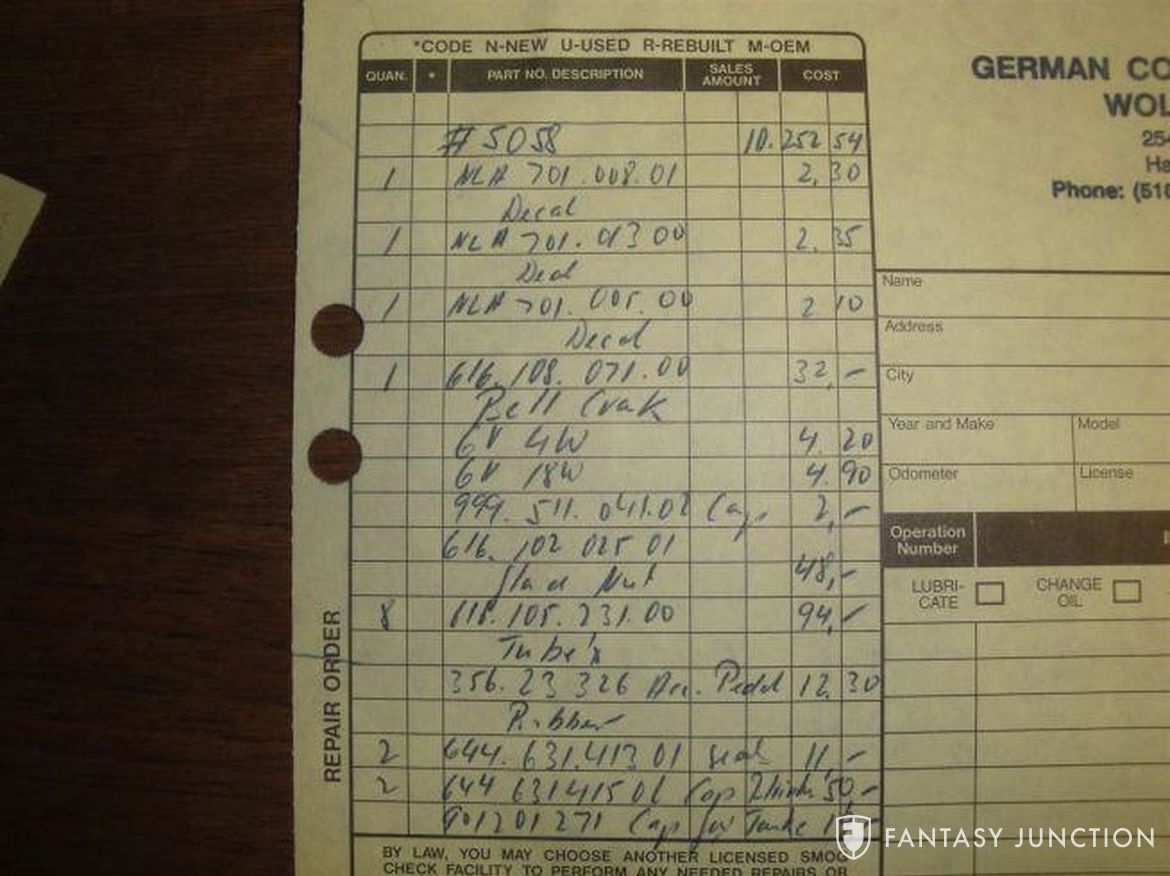 *CODE N-NEW U-USED R-REBUILT M-OEM
QUAN. * PART NO. DESCRIPTION SALES AMOUNT COST
# 5058 10.252 54
1 NLA 701.008.01 2,30
Decal
1 NLA 701.013 00 2.35
Decal
1 NLA 701.005.00 2 10
Decal
1 616.108.071.00 32,-
Bell Crak
6V 4W 4.20
6V 18W 4.90
999.511.041.02 Cap 2,-
616.102 025 01
Nut 48,-
8 616.105.231.00 94,-
Tube's
356.23 326 Acc. Pedal 12,30
Rubber
2 644.631.413 01 seal 11,-
2 644 631415 01 Cap 50,-
901201271 Cap for Tanke
BY LAW, YOU MAY CHOOSE ANOTHER LICENSED SMOG
CHECK FACILITY TO PERFORM ANY NEEDED REPAIRS OR
REPAIR ORDER
GERMAN CO
WOL
254
Ha
Phone: (516
Name
Address
City
Year and Make Model
Odometer License
Operation Number
LUBRI-CATE CHANGE OIL
FANTASY JUNCTION